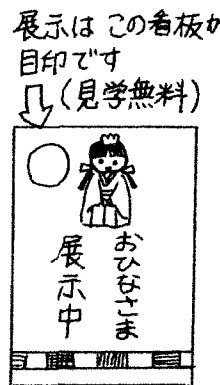 展示は この看板が
目印です
(見学無料)
おひなさま
展示中